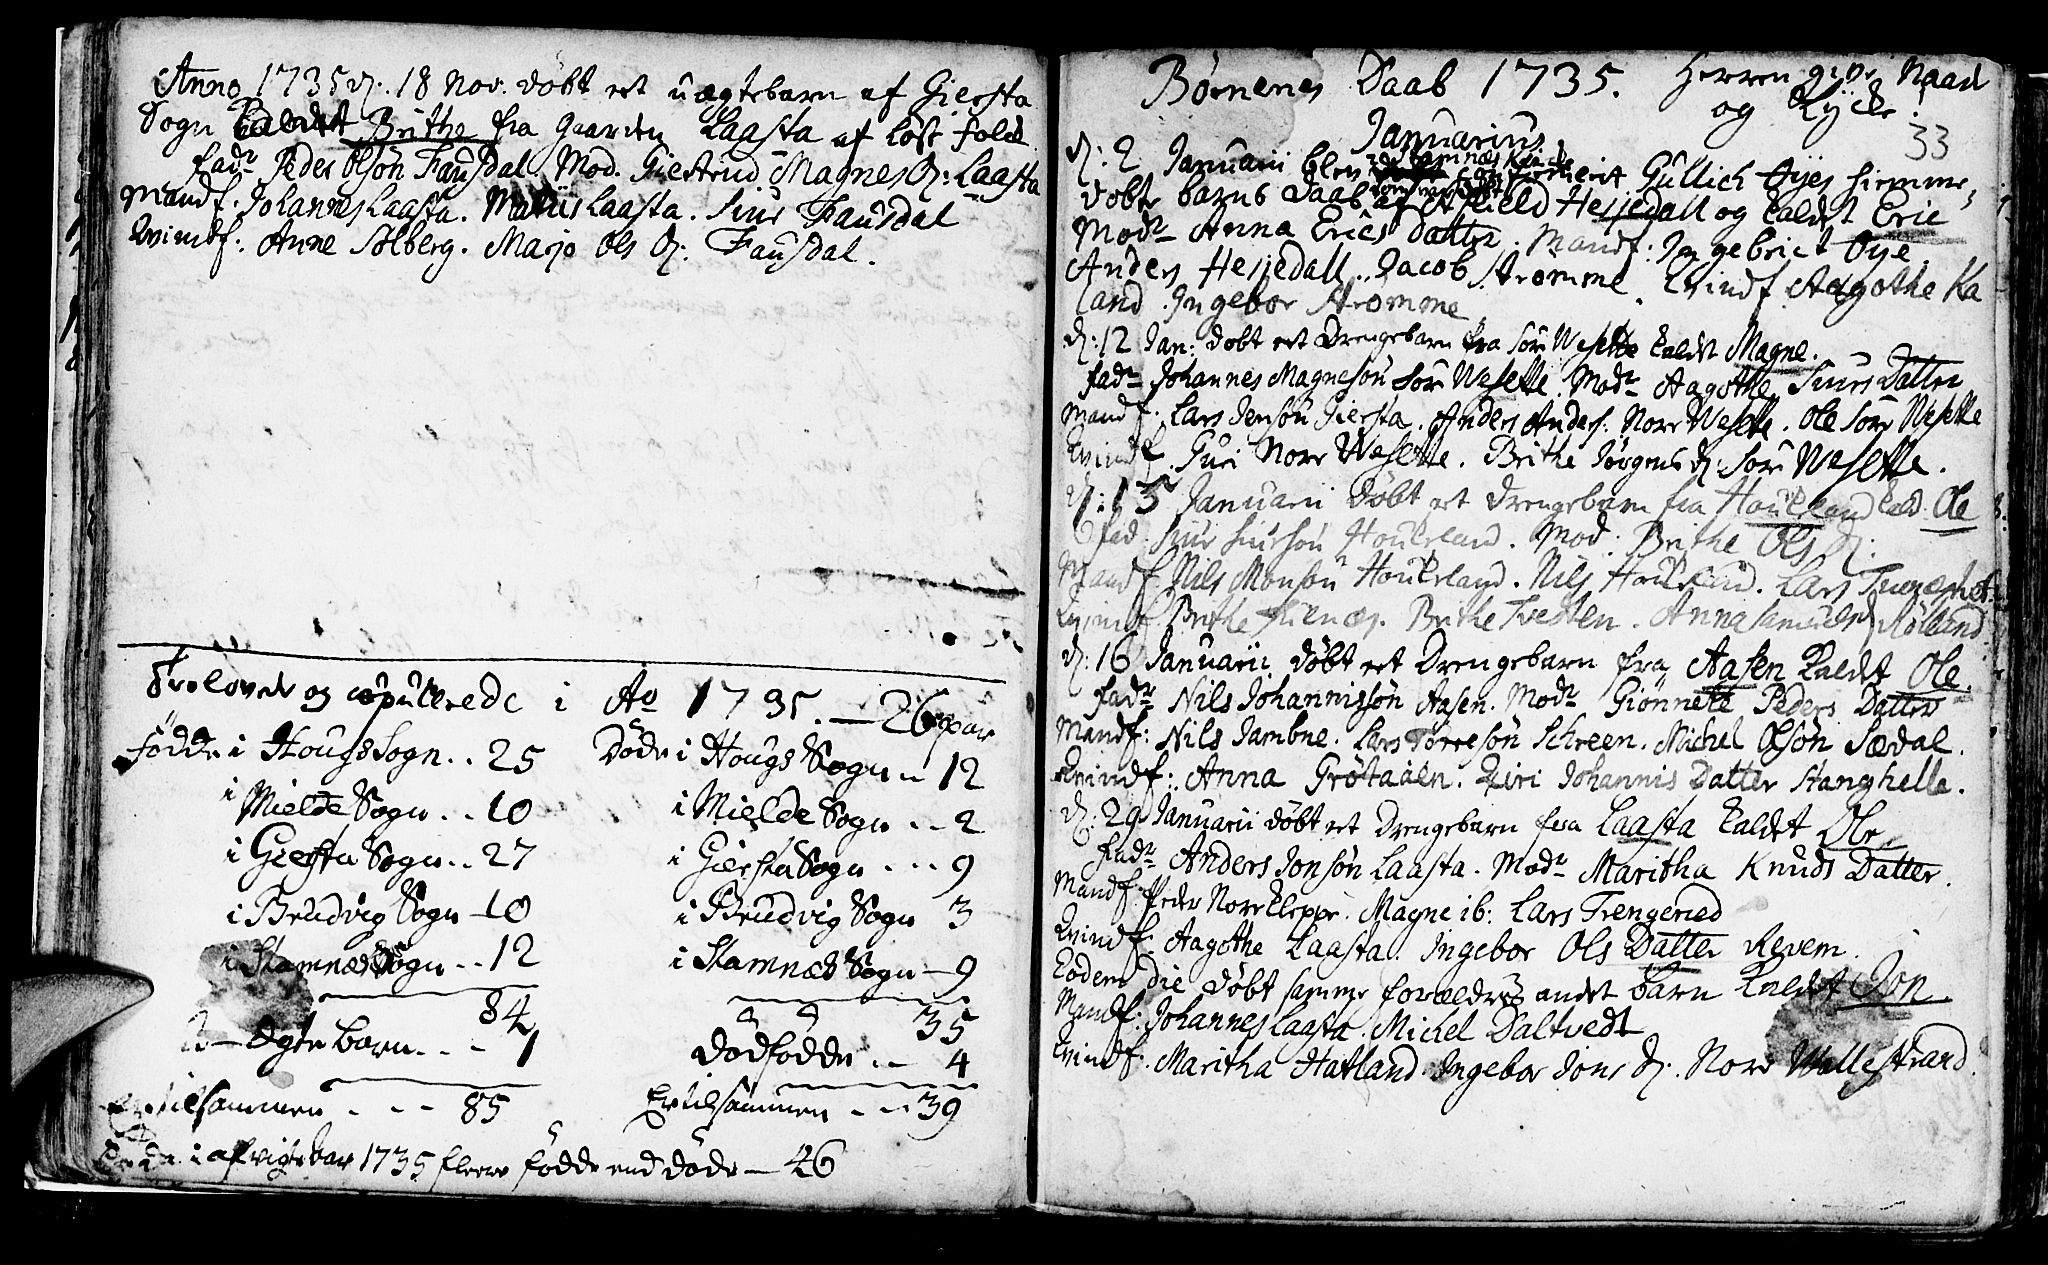 Anno 1735 D: 18 Nov. döbt eet uægtebarn af Giersta
Sogn kaldet Brithe fra Gaarden Laasta af löst folck
fadr Peder Olsön Fausdal. Mod. Giertrud Magnes D: Laasta
Mandf. Johannes Laasta. Matiis Laasta. Siur Fausdal
Qvindf: Anne Solberg. Marjo Ols D: Fausdal.
Trolovede og copulerede i Ao 1735. — 26 par
födde i Hougs Sogn .. 25
i Mielde Sogn .. 10
i Giersta Sogn .. 27
i Brudvig Sogn — 10
i Stamnæs Sogn .. 12
84
Ægte barn ... 1
er tilsammen . . . 85
Döde i Hougs Sogn .. 12
i Mielde Sogn .. 2
i Giersta Sogn ... 9
i Brudvig Sogn 3
i Stamnæs Sogn — 9
35
dödfödde .. 4
er tilsammen ... 39
i afvigte aar 1735 fleere födde end döde — 46
Börnenes Daab 1735. Herren give Naad
og Lycke!
33
Januarius
D: 2 Januarii blev Gullich Öyes hiemme
döbte barns Daab Hield Hesjedall og kaldet Eric
Modr Anna Erics Datter. Mandf: Ingebrict Öye
Anders Hesjedall. Jacob Strömme. Qvindf Aagothe Ka
land. Ingebor Strömme
D: 12 Jan: döbt eet Drengebarn fra Söre Wesette kaldet Magne.
fadr Johannes Magnesön Söre Wesette. Modr Aagothe Siurs Datter
Mandf. Lars Jensön Giersta. Anders Anders: Nore Wesette. Ole Söre Wesette
Qvindf. Guri Nore Wesette. Brithe Jörgens D: Söre Wesette.
D: 15 Januarii döbt eet Drengebarn fra Houkeland kald. Ole
fad: Siur Siursön Houkeland. Mod: Brithe Ols D:
Mandf. Nils Monsön Houkeland. Nils Houkeland. Lars
Qvindf. Brithe . Brithe Tvedten. Anna Samuels D Röland
D: 16 Januarii döbt eet Drengebarn fra Aasen kaldet Ole.
fadr Nils Johannissön Aasen. Modr Giönnete Peders Datter
Mandf: Nils Jambne. Lars Törresön Schreen. Michel Olsön Sædal.
Qvindf: Anna Grötaaen. Ziri Johannis Datter Stanghelle.
D: 29 Januarii döbt eet Drengebarn fra Laasta kaldet Ole
fadr Anders Jonsön Laasta. Modr Maritha Knuds Datter.
Mandf. Peder Nore Kleppe. Magne ib: Lars Trengeried
Qvindf. Aagothe Laasta. Ingebor Ols Datter Revem.
Eodem die döbt samme forældres andet barn kaldet Jon.
Mandf: Johannes Laasta. Michel Daltvedt
Qvindf. Maritha Hatland. Ingebor Jons D: Nore Wallestrand.